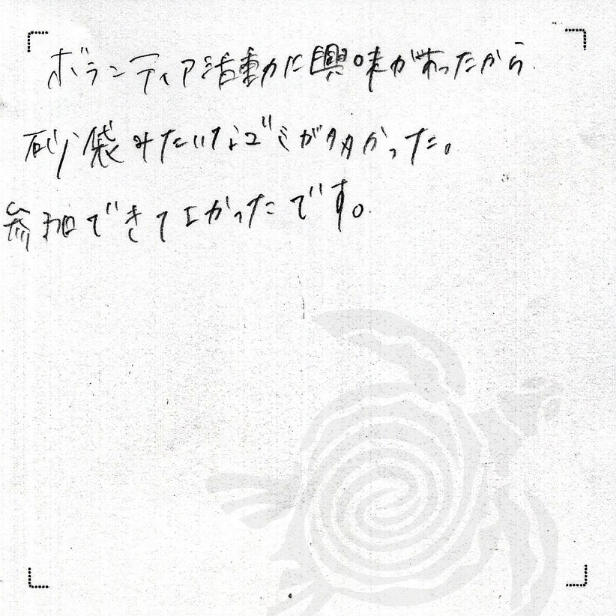 ボランティア活動に興味があったから
砂袋みたいなゴミが多かった。
参加できてよかったです。